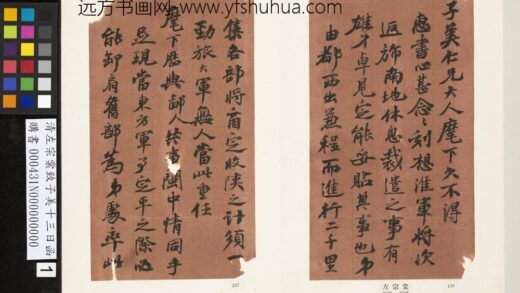 远方书画网-www.yfshuhua.com
子美仁兄大人麾下久不得
惠书心甚念之刻想淮軍將次
返旆南地休息裁遣之事有
雄才卓見定能妥貼其事也弟
由都西出兼程而進行二千里
集各部將商定攻陕之计須一
勁旅大軍無人當此重任
麾下啟與鄙人共事閩中情同手
足現當東方軍事定平之際必
能卸肩舊部為弟處率此
清左宗棠致子美十三日函
購書 000431N000000000
1
157
左宗棠
156